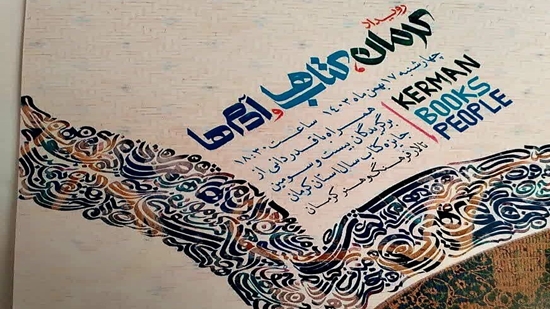 رویداد
کرمان، کتاب‌ها و آدم‌ها
KERMAN
BOOKS
PEOPLE
چهارشنبه ۱۷ بهمن ماه ۱۴۰۳ ساعت ۱۸:۳۰
همراه با قدردانی از
برگزیدگان بیست و سومین
جایزه کتاب سال استان کرمان
تالار فرهنگ و هنر کرمان